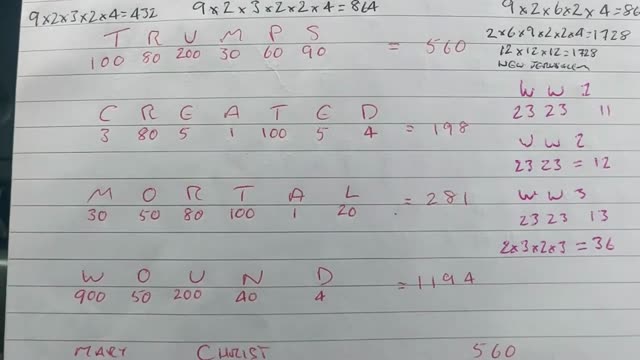 9×2×3×2×4=432 9×2×3×2×2×4=864 9×2×6×2×4=86
T R U M P S
100 80 200 30 60 90 = 560
2×6×9×2×2×4=1728
12×12×12=1728
NEW JERUSALEM
C R E A T E D
3 80 5 1 100 5 4 = 198
W W 1
23 23 11
W W 2
23 23 = 12
M O R T A L
30 50 80 100 1 20 = 281
W W 3
23 23 13
2×3×2×3=36
W O U N D
900 50 200 40 4 = 1194
MARY CHRIST 560